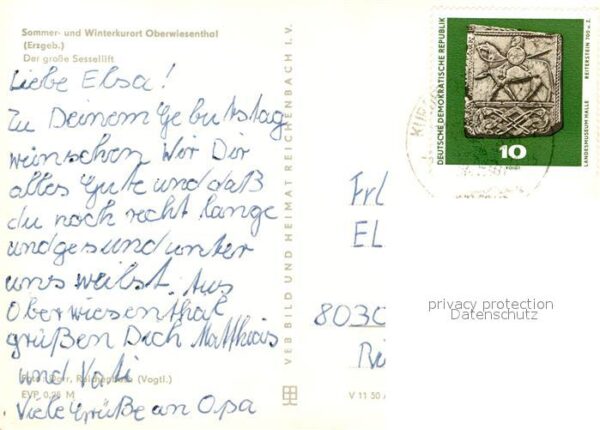 Sommer- und Winterkurort Oberwiesenthal
(Erzgeb.)
Der große Sessellift
Liebe Elsa!
Zu Deinem Gebutstag
wünschen Wir Dir
alles Gute und daß
du noch recht lange
und gesund unter
uns weilst. Aus
Oberwiesenthal
grüßen Dich Matthias
und Vati
Viele Grüße an Opa
(Vogtl.)
EVP 0,25 M
VEB BILD UND HEIMAT REICHENBACH I. V.
V 11 50
DEUTSCHE DEMOKRATISCHE REPUBLIK
REITERSTEIN 700 u. Z.
LANDESMUSEUM HALLE
10
Frl
EL
8030
privacy protection
Datenschutz